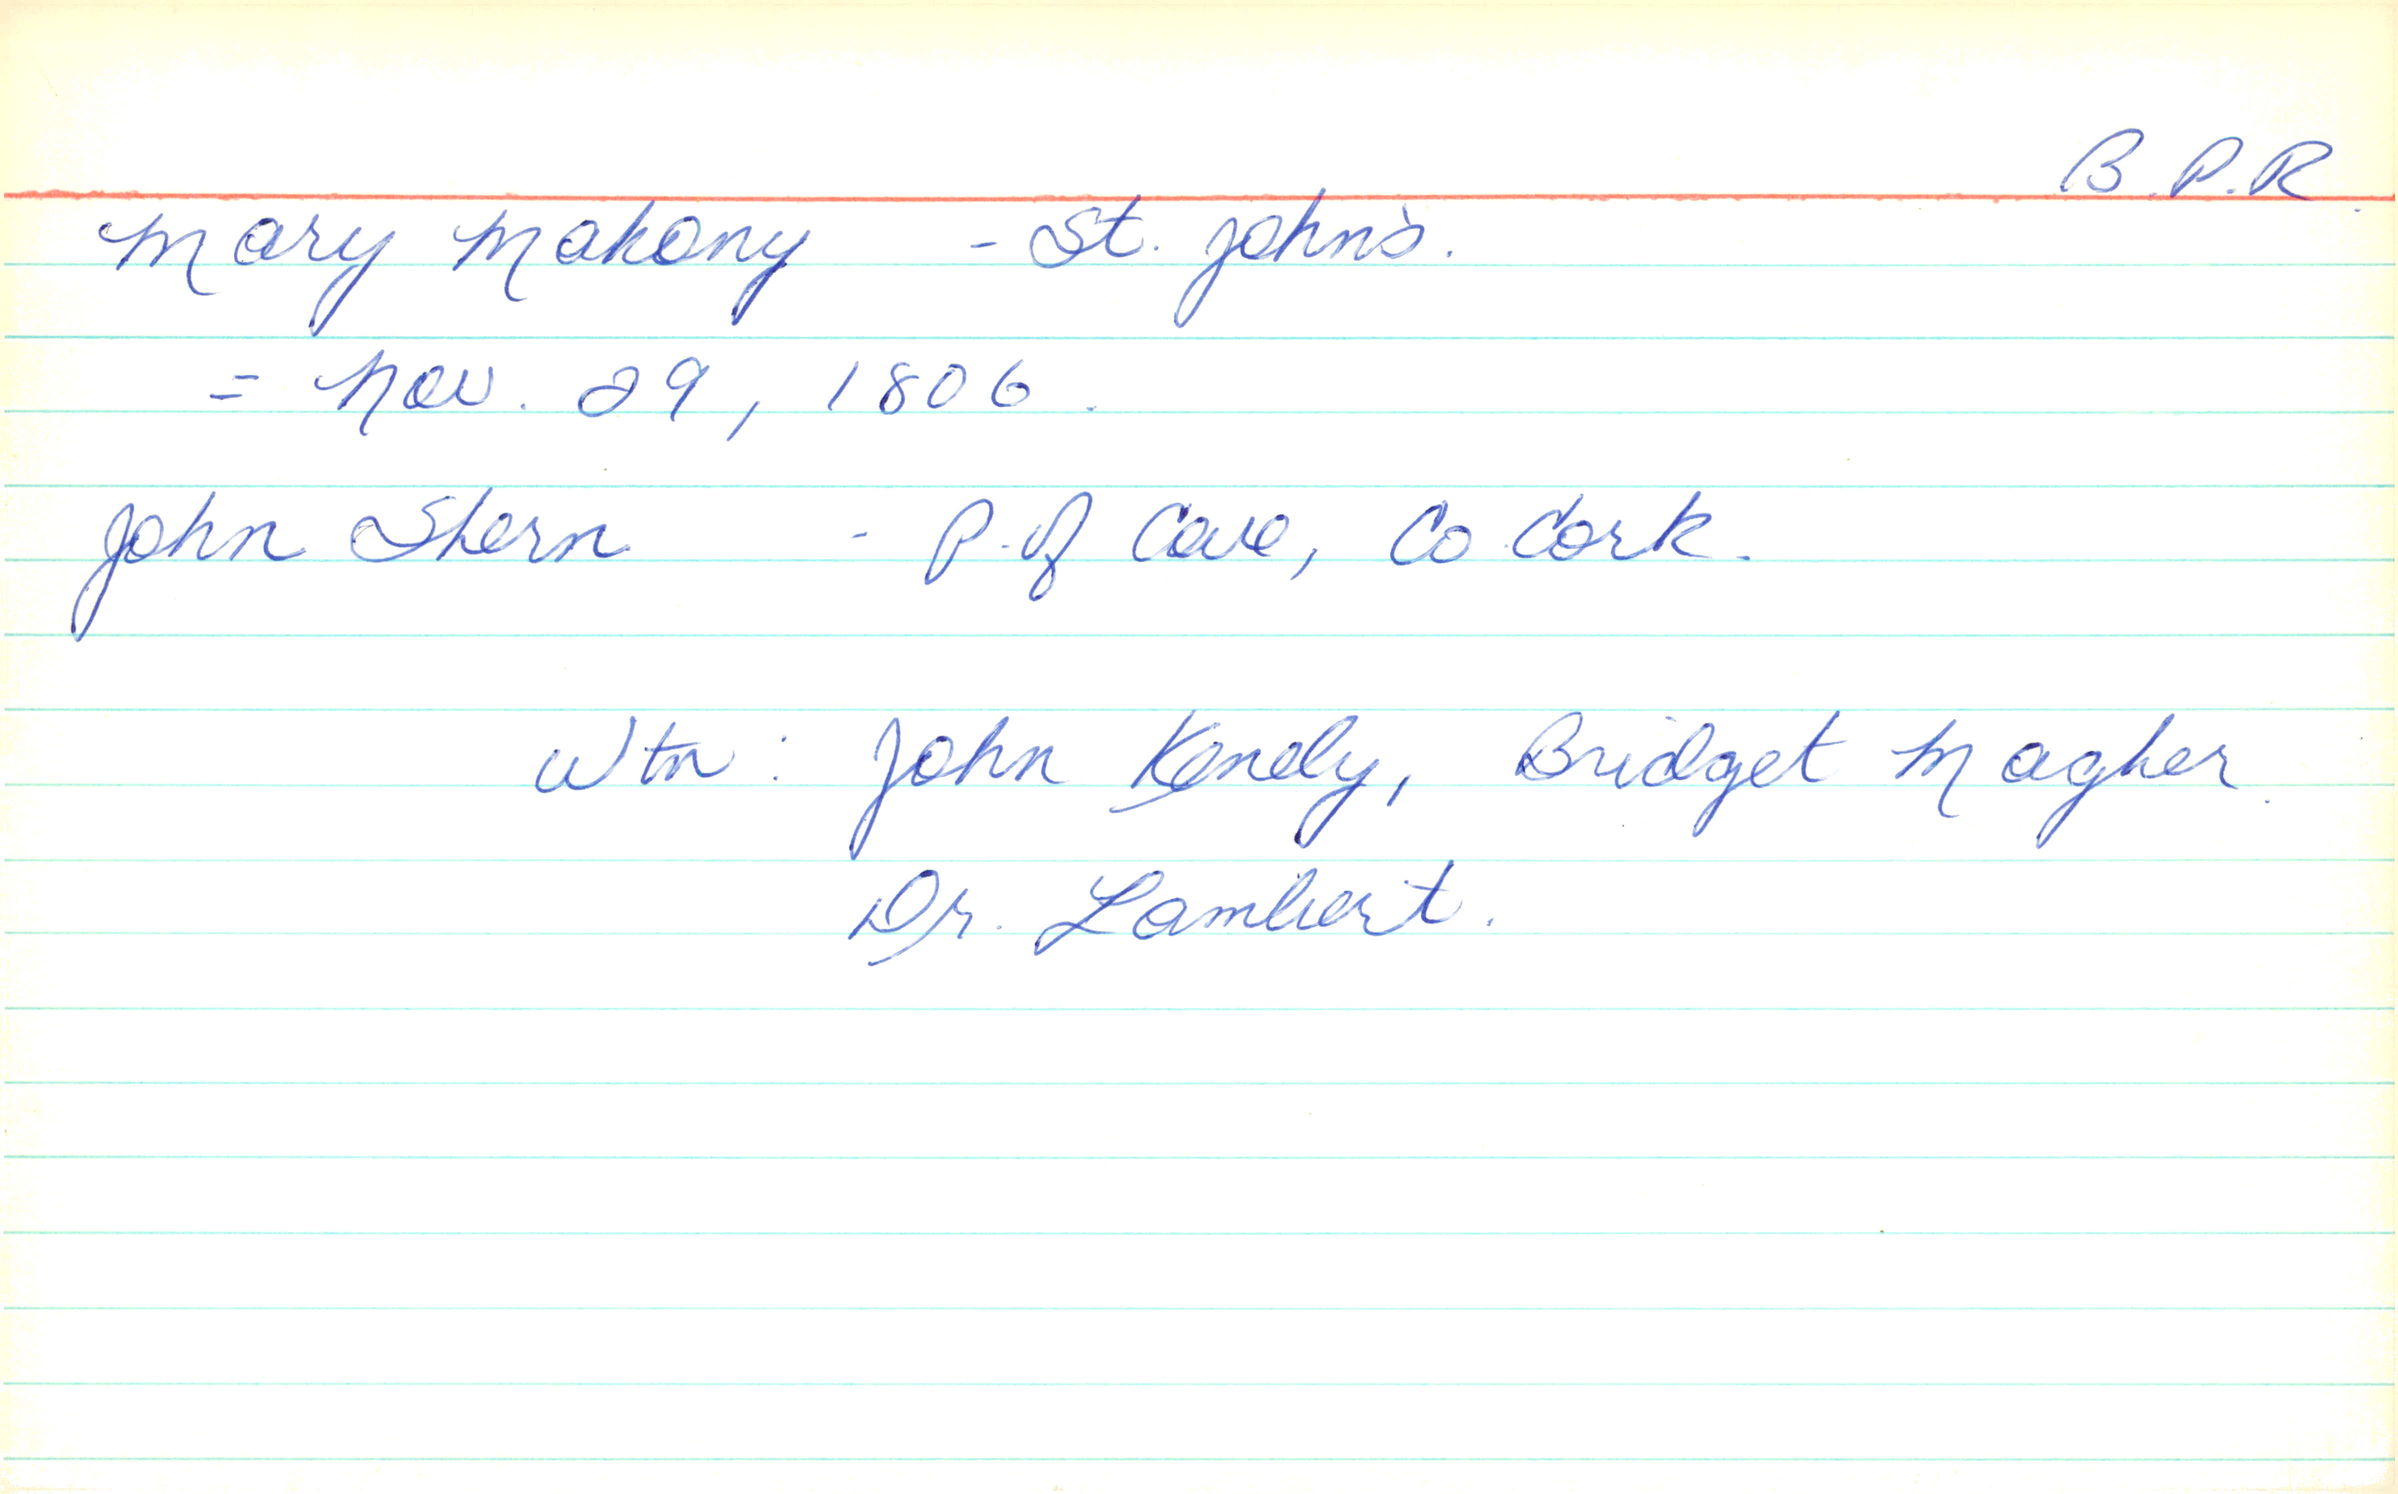 B.P.R.
Mary Mahony - St. John's.
= Nov. 29, 1806.
John Shern - P. of Cove, Co. Cork.
Wtn: John Kendy, Bridget Magher.
Dr. Lambert.